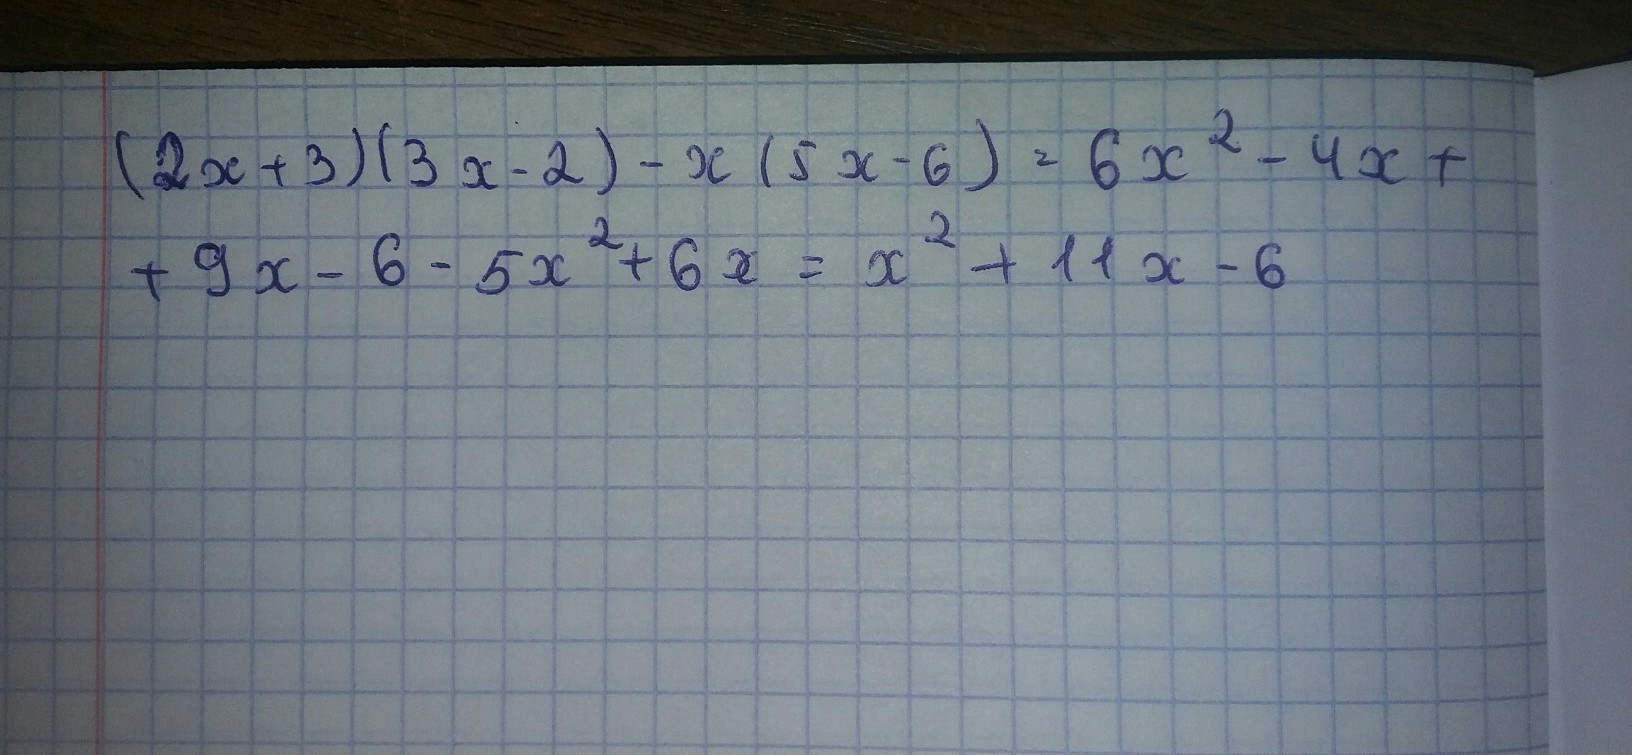 (2x+3)(3x-2)-x(5x-6)=6x²-4x+
+9x-6-5x²+6x=x²+11x-6